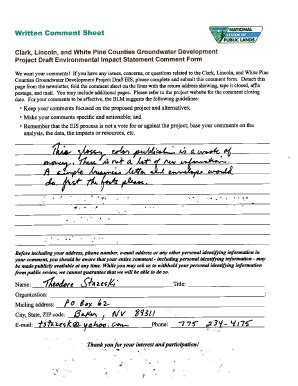 Written Comment Sheet
NATIONAL
SYSTEM OF
PUBLIC LANDS
Clark, Lincoln, and White Pine Counties Groundwater Development
Project Draft Environmental Impact Statement Comment Form
We want your comments! If you have any issues, concerns, or questions related to the Clark, Lincoln, and White Pine
Counties Groundwater Development Project Draft EIS, please complete and submit this comment form. Detach this
page from the newsletter, fold the comment sheet on the lines with the return address showing, tape it closed, affix
postage, and mail. You may include additional pages. Please refer to the project website for the comment closing
date. For your comments to be effective, the BLM suggests the following guidelines:
• Keep your comments focused on the proposed project and alternatives;
• Make your comments specific and actionable; and
• Remember that the EIS process is not a vote for or against the project, base your comments on the
analysis, the data, the impacts or resources, etc.
This glossy, color publication is a waste of
money. There is not a lot of new information.
A simple business letter and envelope would
do. Just the facts please.
Before including your address, phone number, e-mail address or any other personal identifying information in
your comment, you should be aware that your entire comment - including personal identifying information - may
be made publicly available at any time. While you may ask us to withhold your personal identifying information
from public review, we cannot guarantee that we will be able to do so.
Name: Theodore Stazeski Title:
Organization:
Mailing address: PO Box 62
City, State, ZIP code: Baker, NV 89311
E-mail: tstazesk@yahoo.com Phone: 775 234-4175
Thank you for your interest and participation!